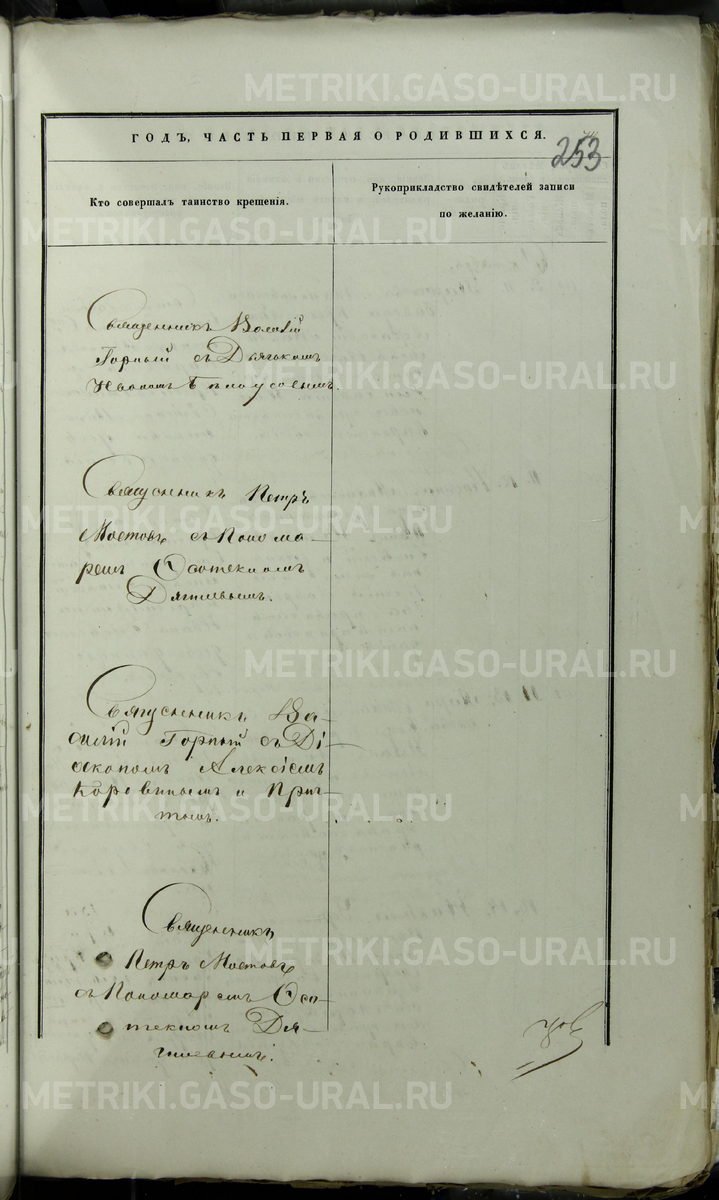 METRIKI.GASO-URAL.RU
ГОДЪ, ЧАСТЬ ПЕРВАЯ О РОДИВШИХСЯ.
253
Кто совершалъ таинство крещенія.
Рукоприкладство свидѣтелей записи
по желанію.
Священникъ Василій
Горный съ Дьячкомъ
Иваномъ
Священникъ Петръ
Мостовъ съ Понома-
ремъ
Дягилевымъ.
Священникъ Ва-
силій Горный съ Ді-
акономъ Алексіемъ
Коровинымъ и Прич-
томъ.
Священникъ
Петръ Мостовъ
съ Пономаремъ
Дя-
гилевымъ.